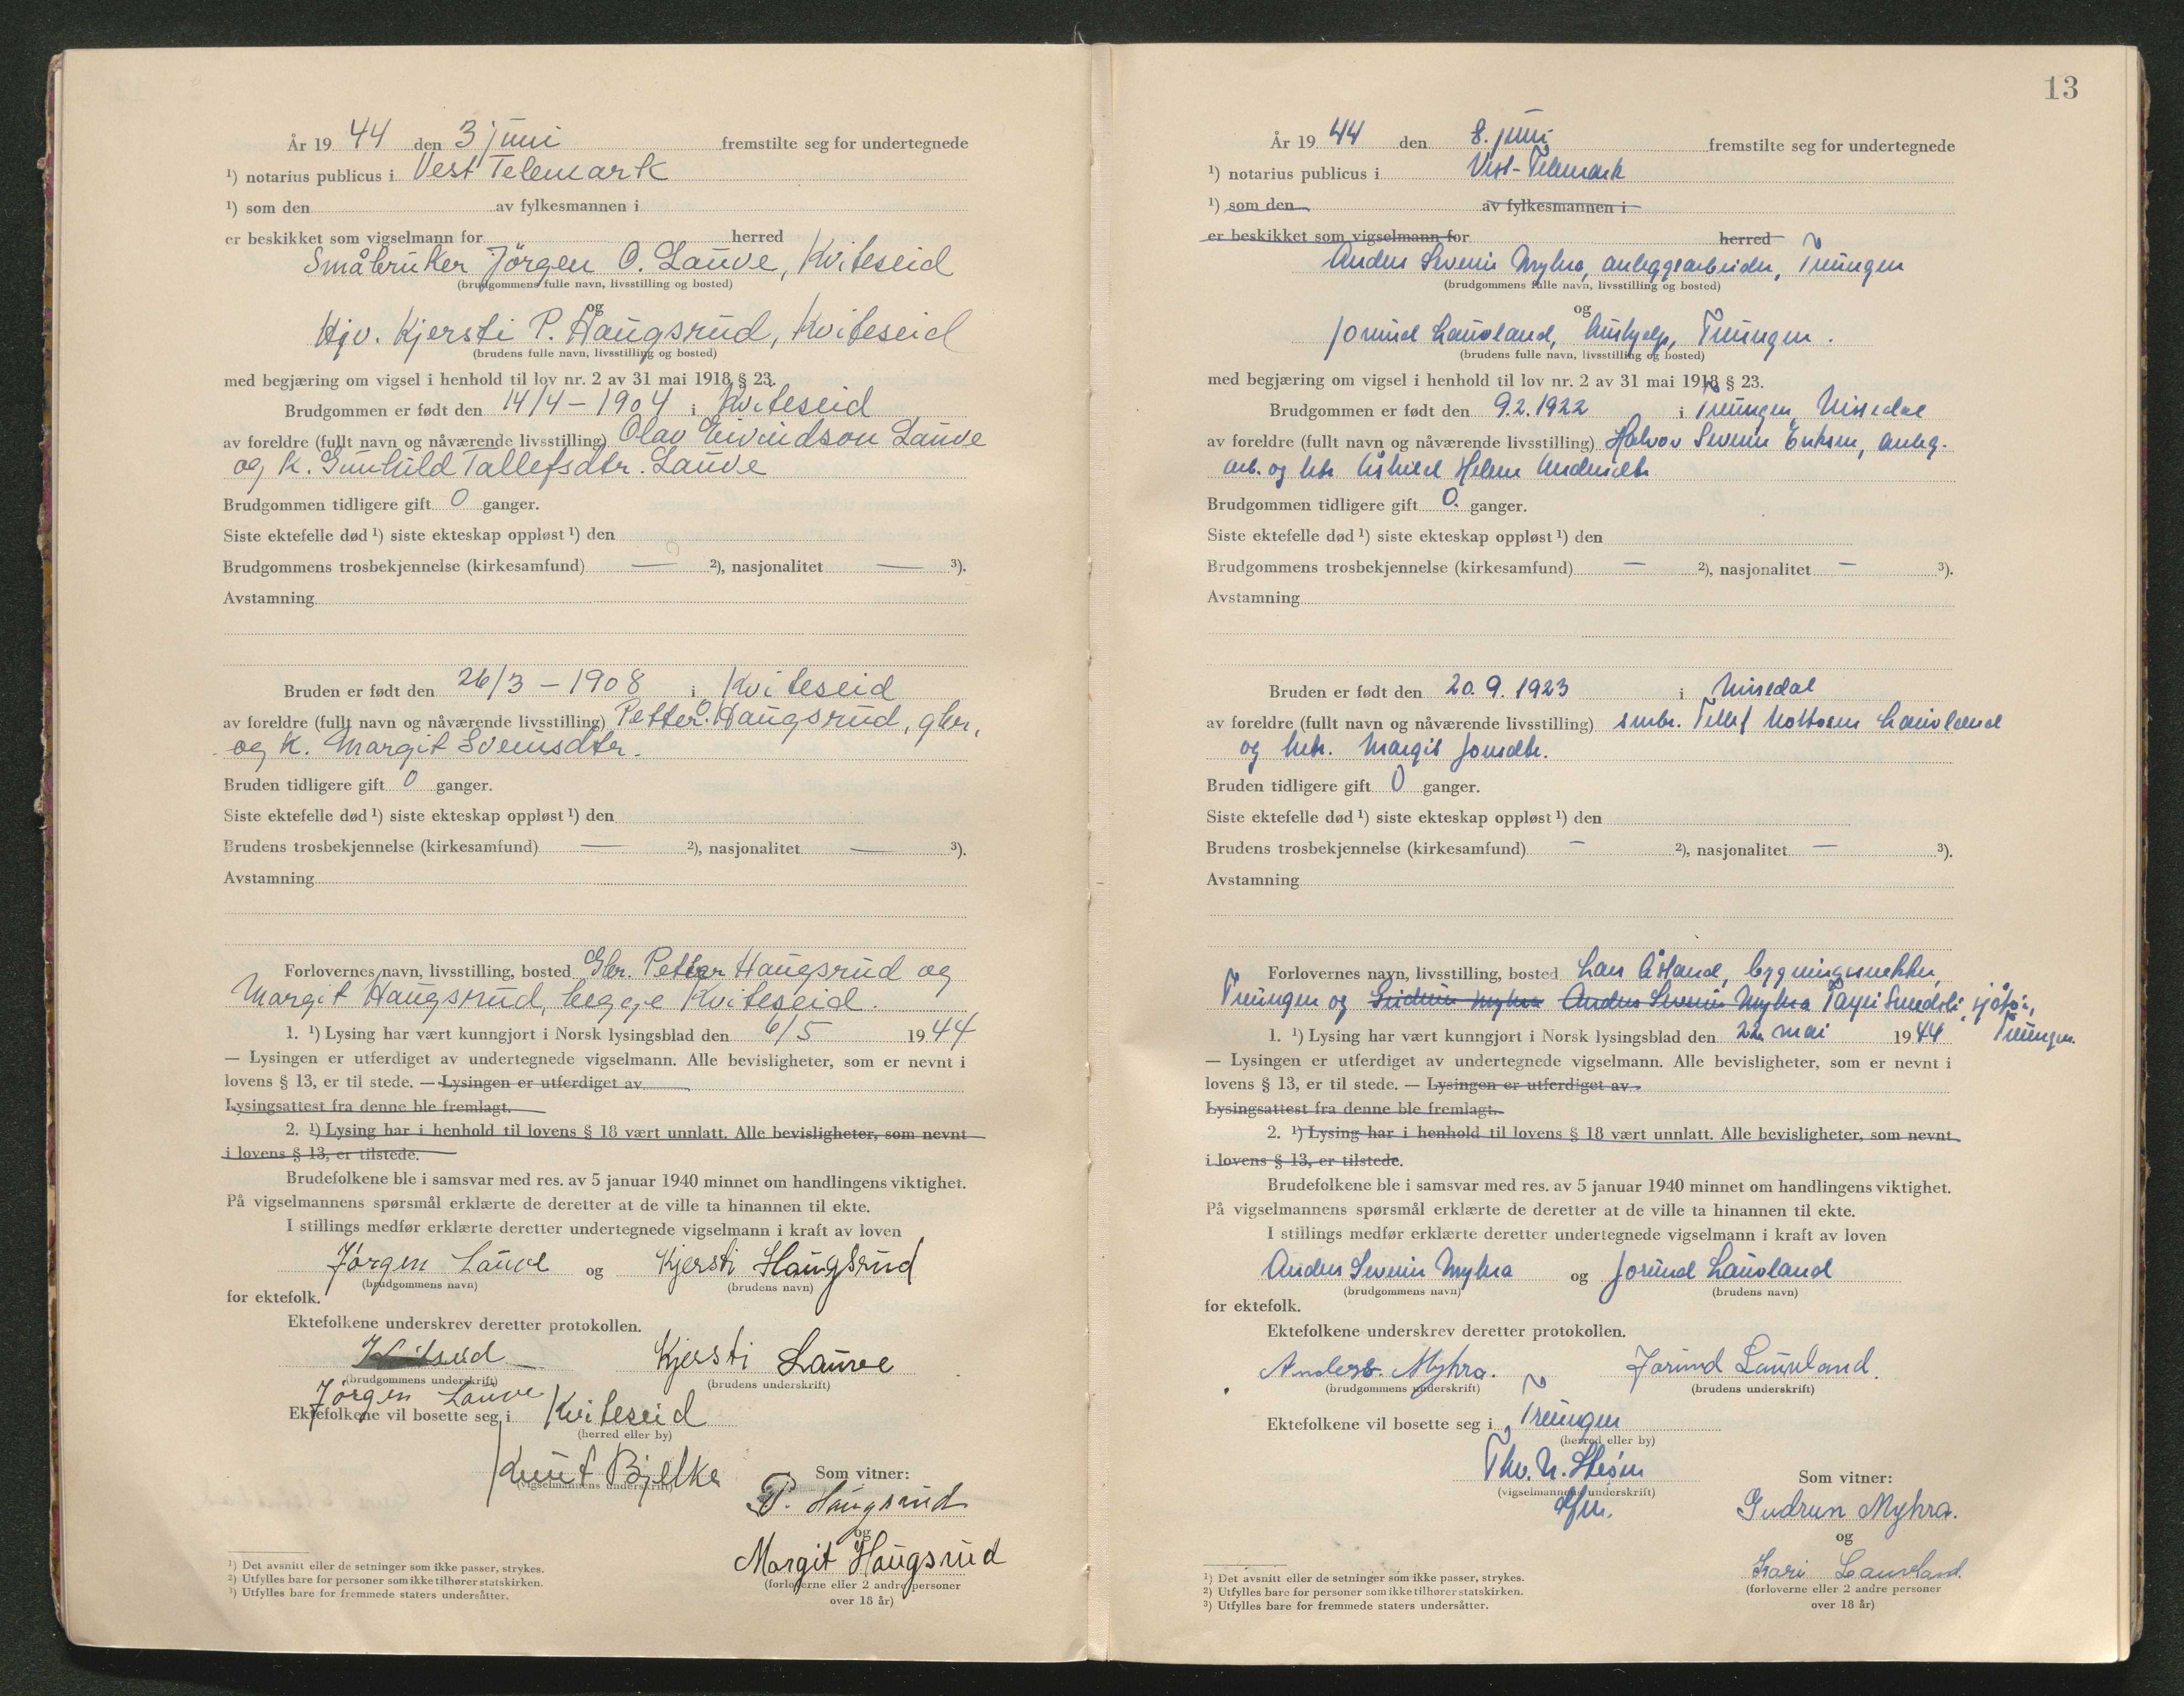 År 19 44 den 3 juni fremstilte seg for undertegnede
¹) notarius publicus i Vest Telemark
¹) som den av fylkesmannen i
er beskikket som vigselmann for herred
Småbruker Jörgen O. Lauve, Kviteseid
(brudgommens fulle navn, livsstilling og bosted)
og
Hjv. Kjersti P. Haugsrud, Kviteseid
(brudens fulle navn, livsstilling og bosted)
med begjæring om vigsel i henhold til lov nr. 2 av 31 mai 1918 § 23.
Brudgommen er født den 14/4 – 1904 i Kviteseid
av foreldre (fullt navn og nåværende livsstilling) Olav Eivindson Lauve
og k. Gunhild Tallefsdtr. Lauve
Brudgommen tidligere gift 0 ganger.
Siste ektefelle død ¹) siste ekteskap oppløst ¹) den
Brudgommens trosbekjennelse (kirkesamfund) — ²), nasjonalitet — ³).
Avstamning
Bruden er født den 26/3 – 1908 i Kviteseid
av foreldre (fullt navn og nåværende livsstilling) Petter O. Haugsrud, gbr.,
og k. Margit Sveinsdtr.
Bruden tidligere gift 0 ganger.
Siste ektefelle død ¹) siste ekteskap oppløst ¹) den
Brudens trosbekjennelse (kirkesamfund) — ²), nasjonalitet — ³).
Avstamning
Forlovernes navn, livsstilling, bosted Gbr. Petter Haugsrud og
Margit Haugsrud, begge Kviteseid.
1. ¹) Lysing har vært kunngjort i Norsk lysingsblad den 6/5 1944
— Lysingen er utferdiget av undertegnede vigselmann. Alle bevisligheter, som er nevnt i
lovens § 13, er til stede. — Lysingen er utferdiget av
Lysingsattest fra denne ble fremlagt.
2. ¹) Lysing har i henhold til lovens § 18 vært unnlatt. Alle bevisligheter, som nevnt
i lovens § 13, er tilstede.
Brudefolkene ble i samsvar med res. av 5 januar 1940 minnet om handlingens viktighet.
På vigselmannens spørsmål erklærte de deretter at de ville ta hinannen til ekte.
I stillings medfør erklærte deretter undertegnede vigselmann i kraft av loven
Jørgen Lauve og Kjersti Haugsrud
(brudgommens navn) (brudens navn)
for ektefolk.
Ektefolkene underskrev deretter protokollen.
Kjersti Lauve
(brudgommens underskrift) (brudens underskrift)
Jørgen Lauve
Ektefolkene vil bosette seg i Kviteseid
(herred eller by)
Knut Bjelke
(vigselmannens underskrift)
Som vitner:
P. Haugsrud
og
Margit Haugsrud
(forloverne eller 2 andre personer
over 18 år)
¹) Det avsnitt eller de setninger som ikke passer, strykes.
²) Utfylles bare for personer som ikke tilhører statskirken.
³) Utfylles bare for fremmede staters undersåtter.
13
År 19 44 den 8. juni fremstilte seg for undertegnede
¹) notarius publicus i Vest-Telemark
¹) som den av fylkesmannen i
er beskikket som vigselmann for herred
Anders Severin Myhra, anleggsarbeider, Treungen
(brudgommens fulle navn, livsstilling og bosted)
og
Jorund Lauvland, hushjelp, Treungen.
(brudens fulle navn, livsstilling og bosted)
med begjæring om vigsel i henhold til lov nr. 2 av 31 mai 1918 § 23.
Brudgommen er født den 9.2.1922 i Treungen, Nissedal
av foreldre (fullt navn og nåværende livsstilling) Halvor Severin Eriksen, anleg.
arb. og htr. Åshild Helene Andersdtr.
Brudgommen tidligere gift 0. ganger.
Siste ektefelle død ¹) siste ekteskap oppløst ¹) den
Brudgommens trosbekjennelse (kirkesamfund) — ²), nasjonalitet — ³).
Avstamning
Bruden er født den 20.9.1923 i Nissedal
av foreldre (fullt navn og nåværende livsstilling) smbr. Tellef Lauvland
og htr. Margit Jonsdtr.
Bruden tidligere gift 0 ganger.
Siste ektefelle død ¹) siste ekteskap oppløst ¹) den
Brudens trosbekjennelse (kirkesamfund) — ²), nasjonalitet — ³).
Avstamning
Forlovernes navn, livsstilling, bosted Lars Åsland, bygningssnekker,
Treungen og Gudrun Myhra Anders Severin Myhra sjåfør,
Treungen.
1. ¹) Lysing har vært kunngjort i Norsk lysingsblad den 22. mai 1944
— Lysingen er utferdiget av undertegnede vigselmann. Alle bevisligheter, som er nevnt i
lovens § 13, er til stede. — Lysingen er utferdiget av
Lysingsattest fra denne ble fremlagt.
2. ¹) Lysing har i henhold til lovens § 18 vært unnlatt. Alle bevisligheter, som nevnt
i lovens § 13, er tilstede.
Brudefolkene ble i samsvar med res. av 5 januar 1940 minnet om handlingens viktighet.
På vigselmannens spørsmål erklærte de deretter at de ville ta hinannen til ekte.
I stillings medfør erklærte deretter undertegnede vigselmann i kraft av loven
Anders Severin Myhra og Jorund Lauvland
(brudgommens navn) (brudens navn)
for ektefolk.
Ektefolkene underskrev deretter protokollen.
Anders Myhra. Jorund Lauvland.
(brudgommens underskrift) (brudens underskrift)
Ektefolkene vil bosette seg i Treungen
(herred eller by)
Thv. N.
(vigselmannens underskrift)
Som vitner:
Gudrun Myhra.
og
Kari Lauvland.
(forloverne eller 2 andre personer
over 18 år)
¹) Det avsnitt eller de setninger som ikke passer, strykes.
²) Utfylles bare for personer som ikke tilhører statskirken.
³) Utfylles bare for fremmede staters undersåtter.